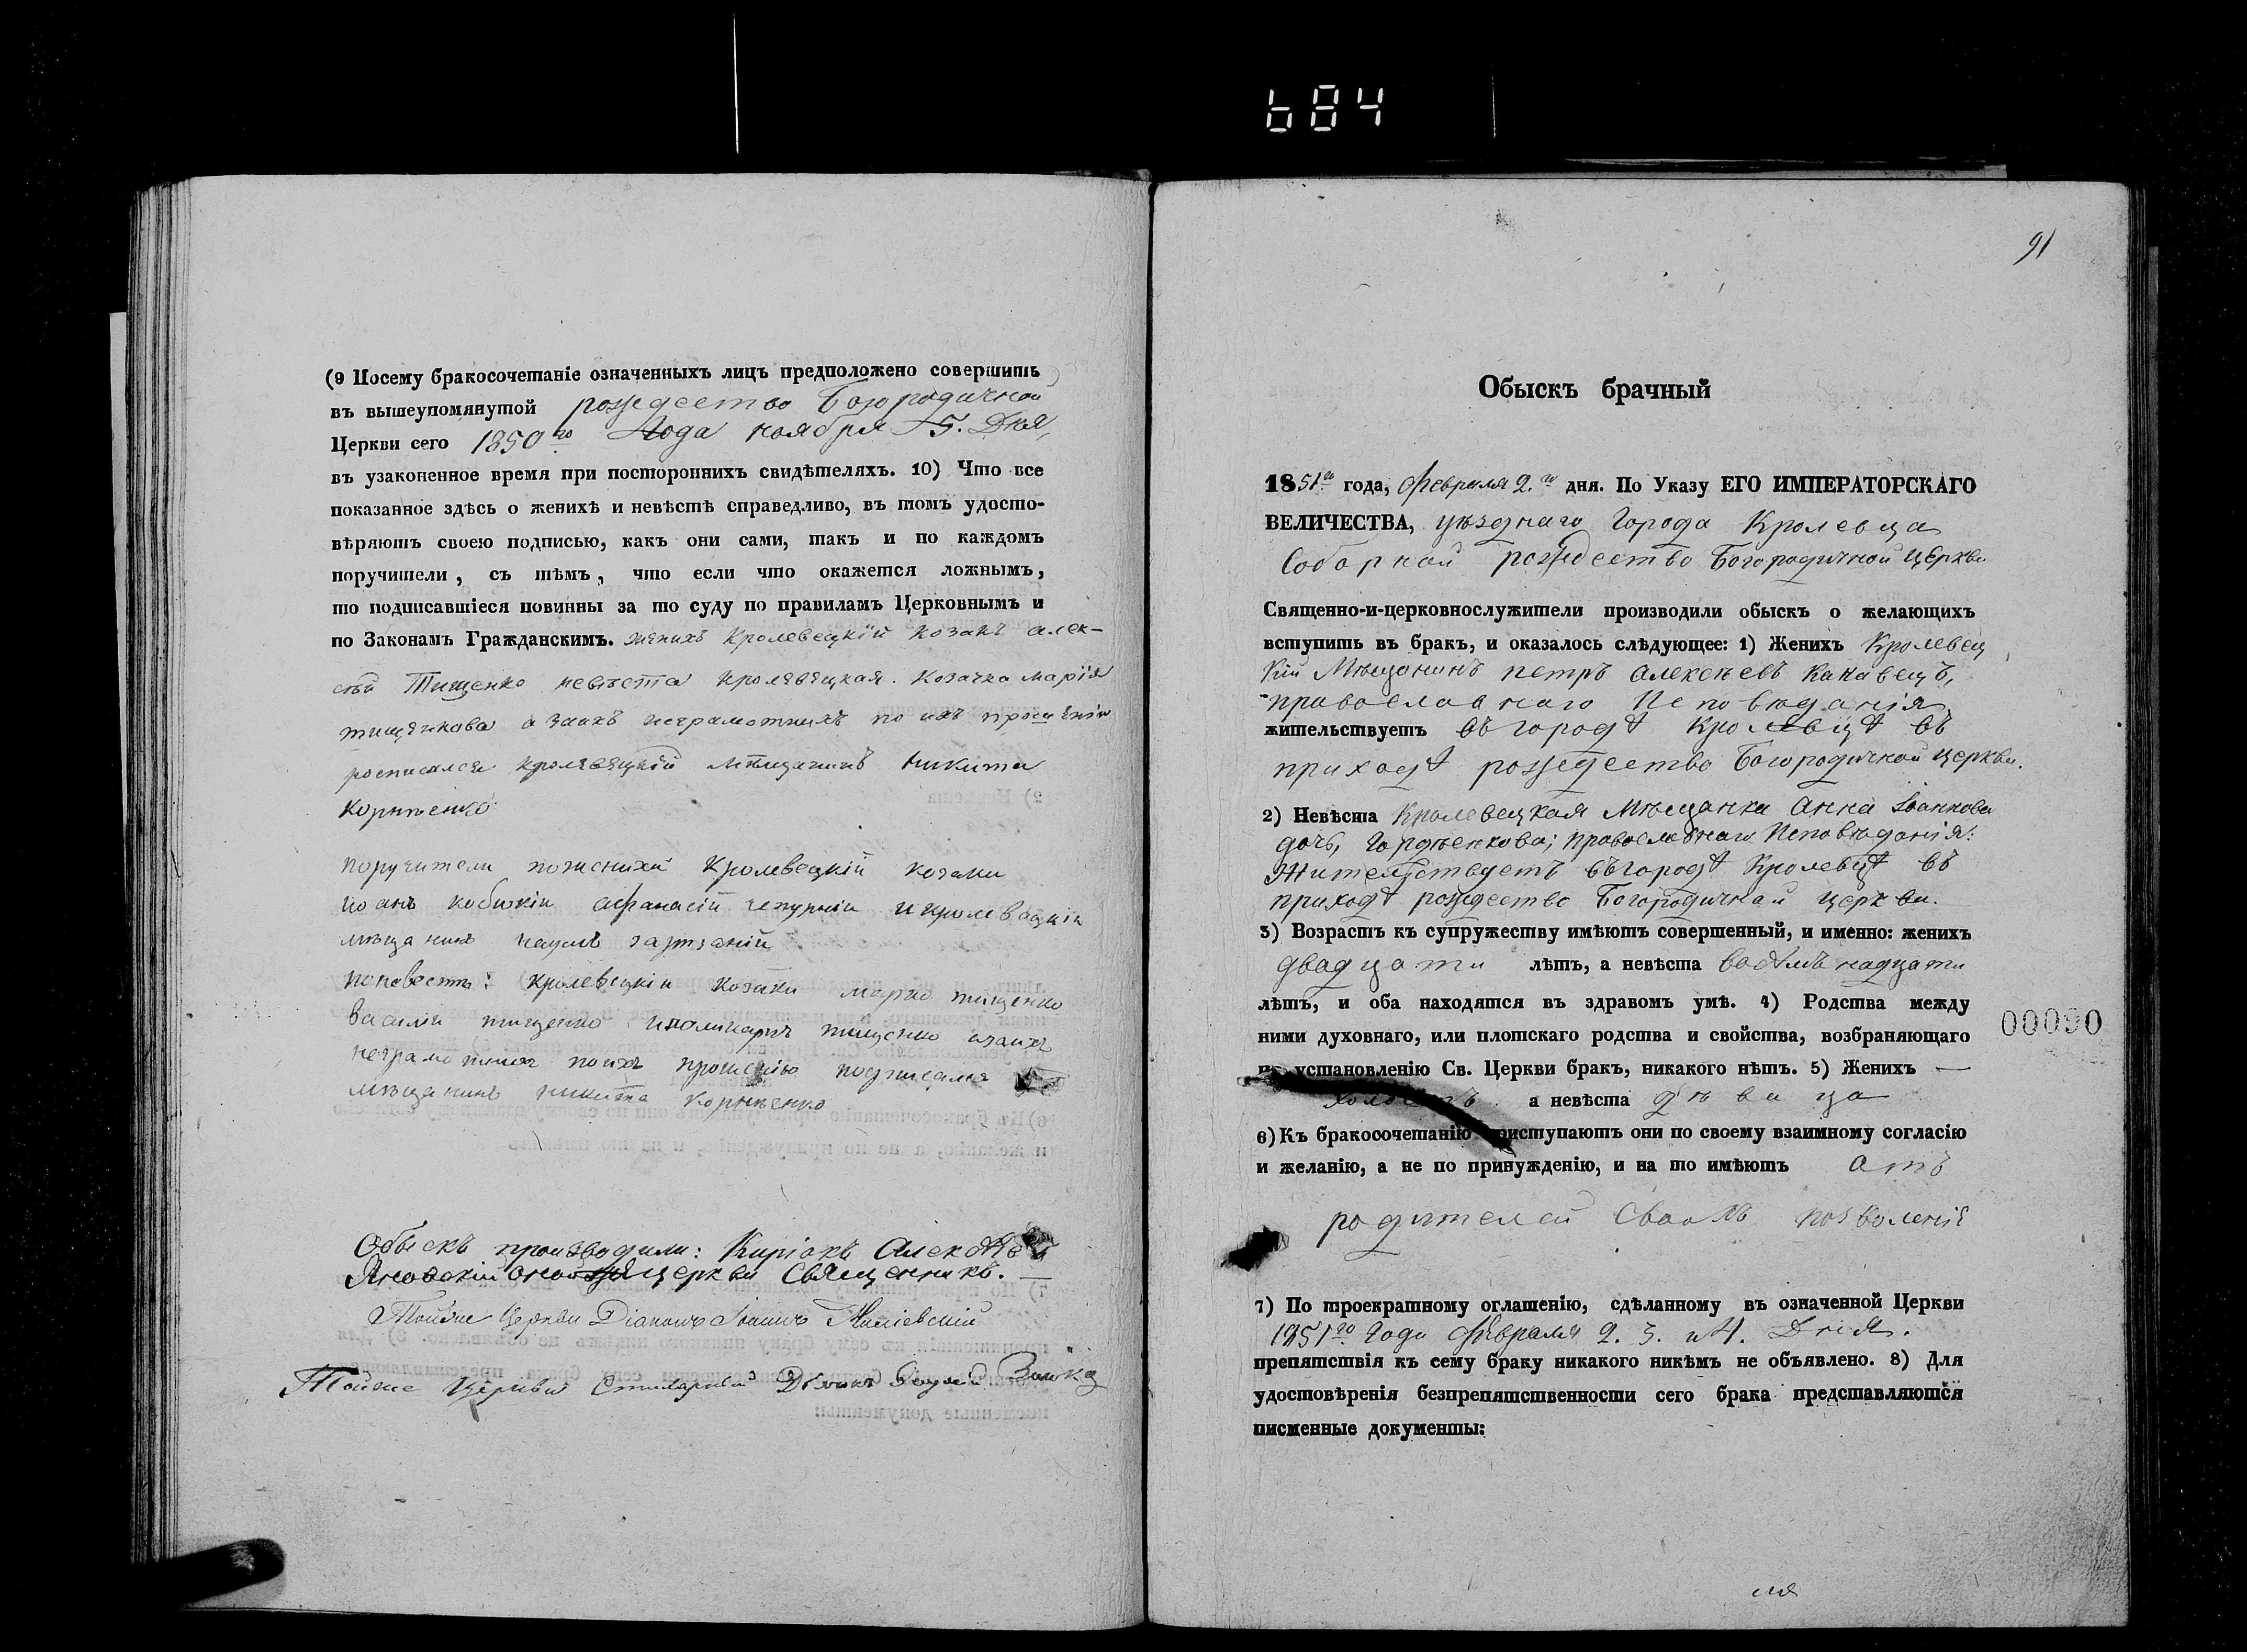 684
(9 Посему бракосочетаніе означенныхъ лицъ предположено совершить
въ вышеупомянутой рождество Богородичной
Церкви сего 1850го Года ноября 5. Дня,
въ узаконенное время при постороннихъ свидѣтеляхъ. 10) Что все
показанное здѣсь о женихѣ и невѣстѣ справедливо, въ томъ удосто-
вѣряютъ своею подписью, какъ они сами, такъ и по каждомъ
поручители, съ тѣмъ, что если что окажется ложнымъ,
то подписавшіеся повинны за то суду по правиламъ Церковнымъ и
по Законамъ Гражданскимъ. женихъ Кролевецкій козакъ алек-
сѣй Тищенко невѣста кролевецкая козачка марія
тищенкова а заихъ неграмотныхъ по ихъ прошенію
росписался кролевецкій мѣщанинъ никита
Корнѣенко
поручители пожениха Кролевецкій козаки
іоанъ афанасій чепурній икролевецкій
мѣщанинъ наумъ
поневесты: кролевецкіи козаки марко тищенко
василій тищенко тищенко азаихъ
неграмотныхъ поихъ прошенію подписался
мѣщанинъ никита корнѣенко
Обыскъ производили: Киріакъ Алексѣевъ
Яновскій оной церкви Священникъ.
Тойже Церкви Діаконъ Іоаннъ
Тойже Церкви Дьячокъ
91
Обыскъ брачный
1851го года, февраля 2.го дня. По Указу ЕГО ИМПЕРАТОРСКАГО
ВЕЛИЧЕСТВА, уѣзднаго Города Кролевца
Соборной рождество Богородичной церкви
Священно-и-церковнослужители производили обыскъ о желающихъ
вступить въ бракъ, и оказалось слѣдующее: 1) Женихъ Кролевец
кій Мѣщанинъ петръ алексѣевъ Канавецъ,
православнаго Исповѣданія
жительствуетъ въ городѣ Кролевцѣ въ
приходѣ рождество Богородичной церкви.
2) Невѣста Кролевецкая Мѣщанка анна Іоаннова
дочь, Гордѣенкова; православнаго Исповѣданія:
Жительствуетъ въгородѣ Кролевцѣ въ
приходѣ рождество Богородичной церкви.
3) Возрастъ къ супружеству имѣютъ совершенный, и именно: женихъ
двадцати лѣтъ, а невѣста восѣмънадцати
лѣтъ, и оба находятся въ здравомъ умѣ. 4) Родства между
ними духовнаго, или плотскаго родства и свойства, возбраняющаго
по установленію Св. Церкви бракъ, никакого нѣтъ. 5) Женихъ —
холостъ а невѣста дѣвица
6) Къ бракосочетанію приступаютъ они по своему взаимному согласію
и желанію, а не по принужденію, и на то имѣютъ атъ
родителей своихъ позволеніе
7) По троекратному оглашенію, сдѣланному въ означенной Церкви
1851го Года февраля 2. 3. и 4. Дня.
препятствія къ сему браку никакого никѣмъ не объявлено. 8) Для
удостовѣренія безпрепятственности сего брака представляются
писменные документы:
00090